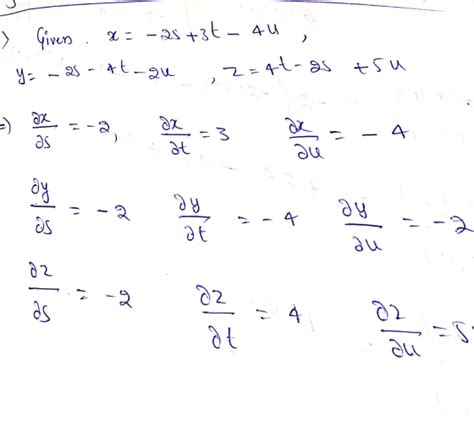 > Given. x = -2s+3t - 4u ,
y= - 2s - 4t - 2u , z = 4t - 2s + 5u
=) ∂x/∂s = -2, ∂x/∂t = 3 ∂x/∂u = - 4
∂y/∂s = - 2 ∂y/∂t = - 4 ∂y/∂u = - 2
∂z/∂s = -2 ∂z/∂t = 4 ∂z/∂u = 5